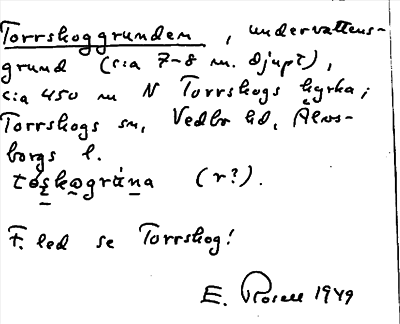 Torrskoggrunden, undervattens-
grund (c:a 7-8 m. djupt),
c:a 450 m N Torrskogs kyrka;
Torrskogs sn, Vedbo hd, Älvs-
borgs l.
(r?).
F. led se Torrskog!
E. Rosell 1949